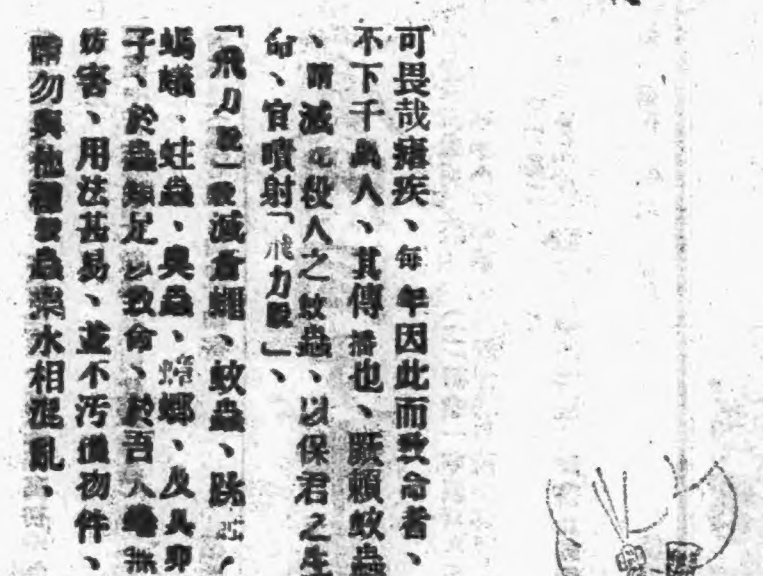 可畏哉瘧疾、每年因此而致命者、
不下千萬人、其傳播也、厥賴蚊蟲
、請滅殺人之蚊蟲、以保君之生
命、官噴射「飛力脫」、
「飛力脫」殺滅蒼蠅、蚊蟲、跳、
螞蟻、蛀蟲、臭蟲、蟑螂、及其卵
子、於蟲類足以致命、於吾人絕無
妨害、用法甚易、並不污物件、
請勿與他種殺蟲藥水相混亂、